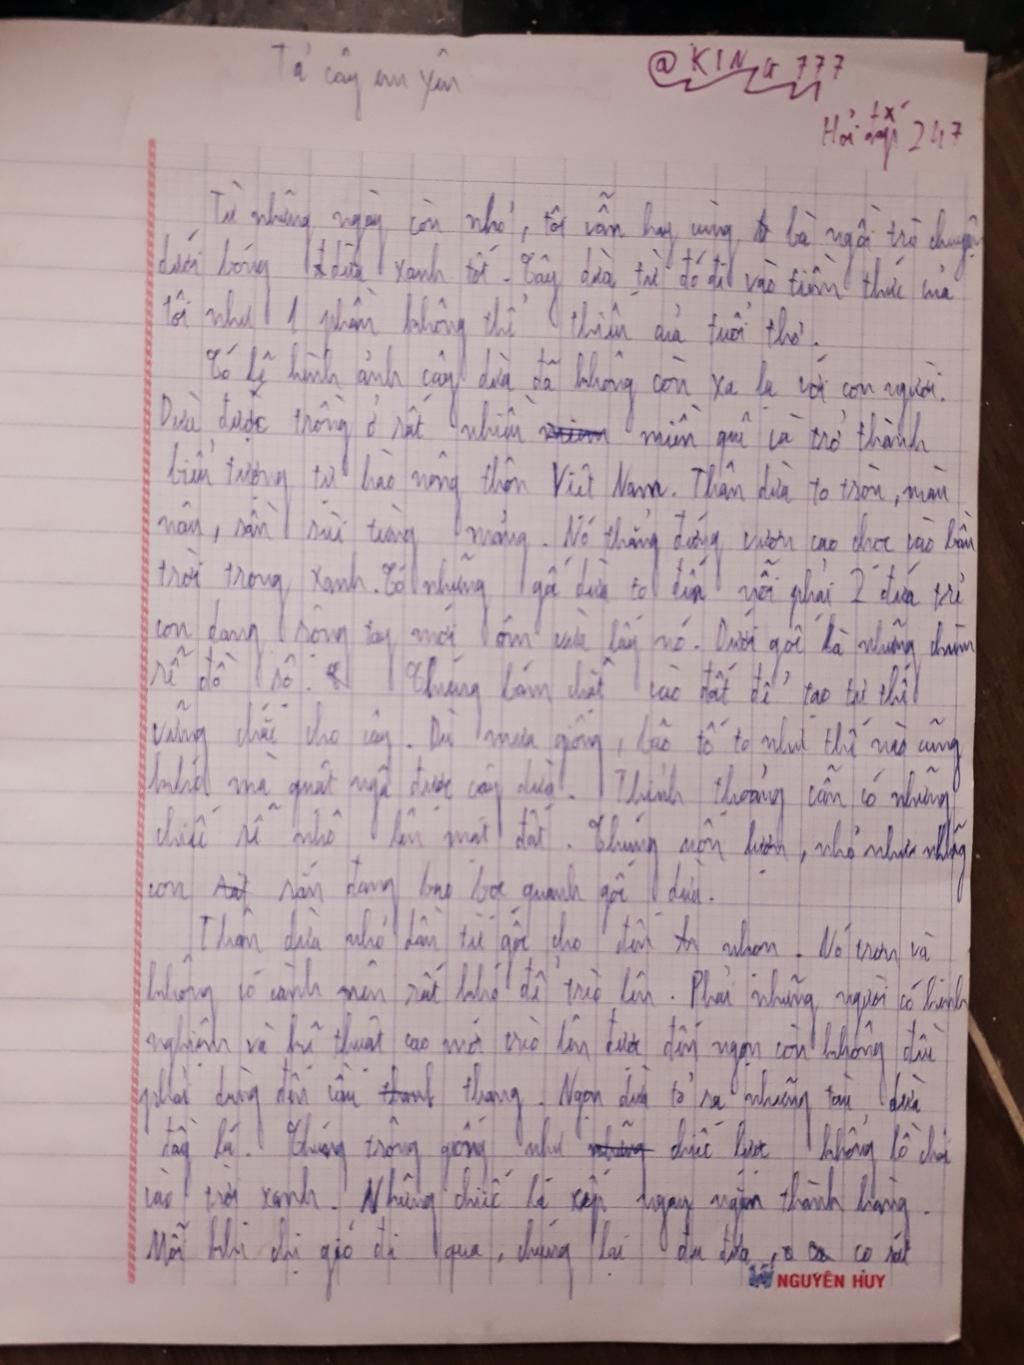 Tả cây em yêu
@KING777
Hỏi đáp 247
Từ những ngày còn nhỏ, tôi vẫn hay cùng bà ngồi trò chuyện
dưới bóng dừa xanh tốt. Cây dừa từ đó đi vào tiềm thức của
tôi như 1 phần không thể thiếu của tuổi thơ.
Có lẽ hình ảnh cây dừa đã không còn xa lạ với con người.
Dừa được trồng ở rất nhiều miền quê và trở thành
biểu tượng tự hào nông thôn Việt Nam. Thân dừa to tròn, màu
nâu, sần sùi từng mảng. Nó thẳng đứng vươn cao chọc vào bầu
trời trong xanh. Có những gốc dừa to đến nỗi phải 2 đứa trẻ
con dang rộng tay mới ôm vừa lấy nó. Dưới gốc là những chùm
rễ đồ sộ. Chúng bám chặt vào đất để tạo tư thế
vững chắc cho cây. Dù mưa giông, bão tố to như thế nào cũng
khó mà quật ngã được cây dừa. Thỉnh thoảng vẫn có những
chiếc rễ nhô lên mặt đất. Chúng uốn lượn, nhỏ như những
con rắn đang bao bọc quanh gốc dừa.
Thân dừa nhỏ dần từ gốc cho đến ngọn. Nó trơn và
không có cành nên rất khó để trèo lên. Phải những người có kinh
nghiệm và kĩ thuật cao mới trèo lên được đến ngọn còn không đều
phải dùng đến cầu thang. Ngọn dừa tỏa ra những tàu dừa
đầy lá. Chúng trông giống như chiếc lược khổng lồ chải
vào trời xanh. Những chiếc lá xếp ngay ngắn thành hàng.
Mỗi khi chị gió đi qua, chúng lại đu đưa, cọ sát
NGUYÊN HUY